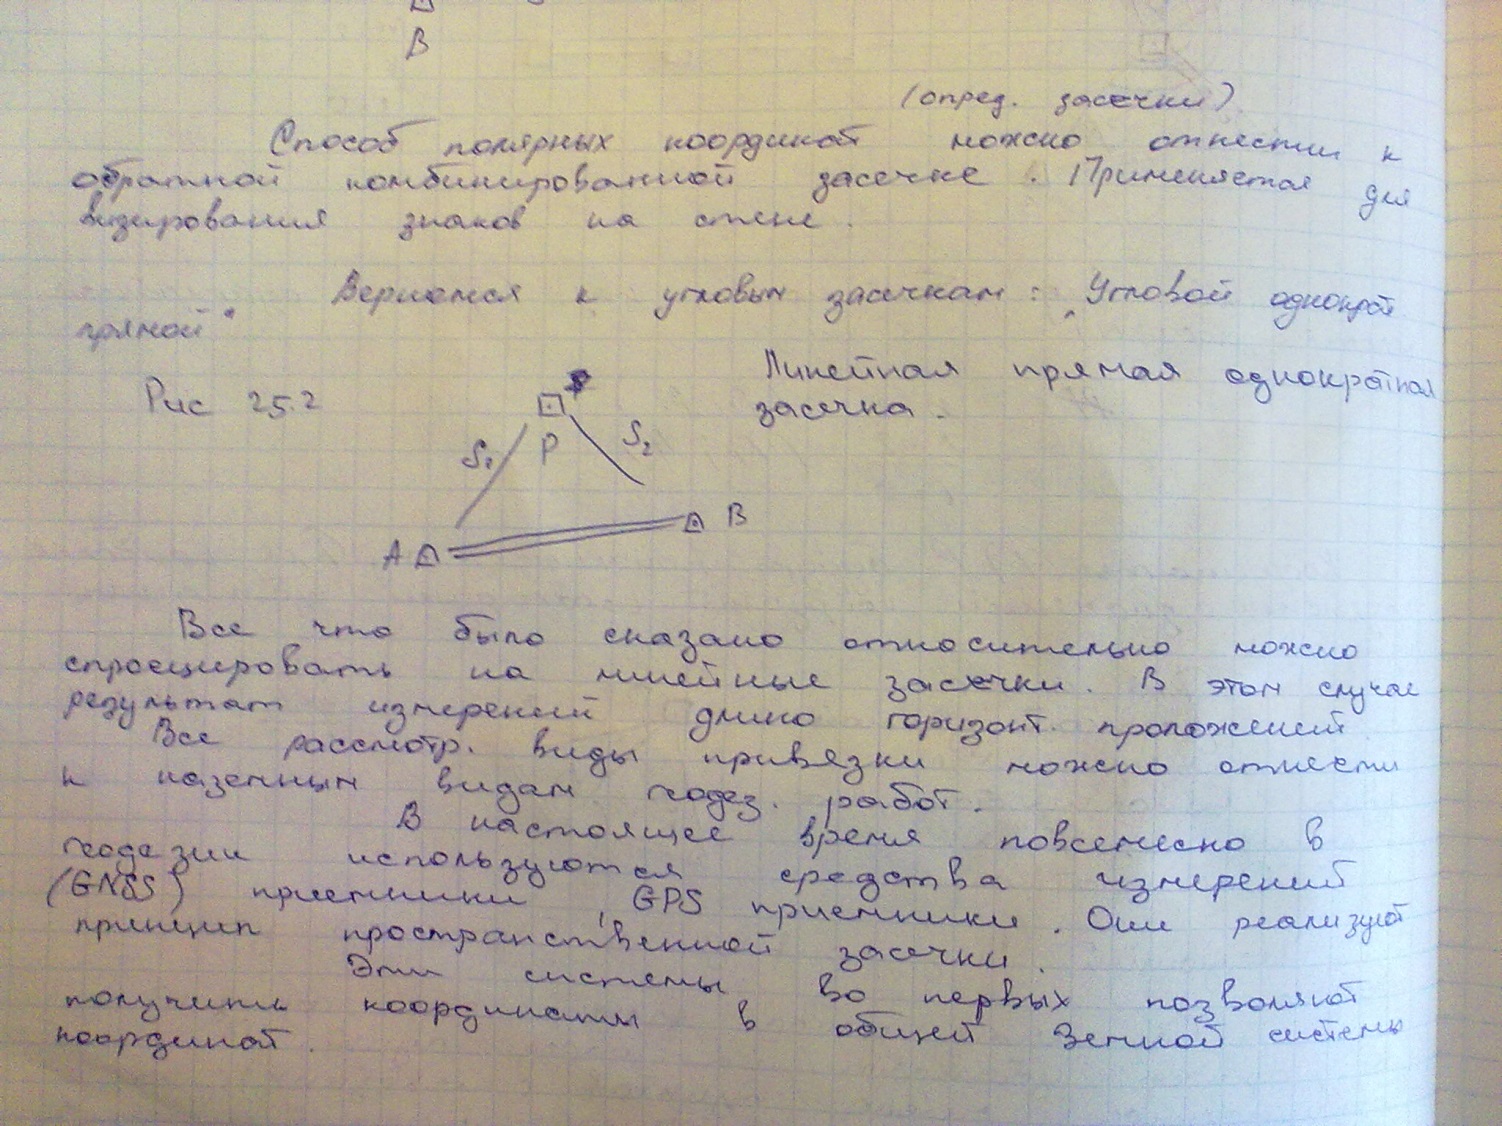 В
(опред. засечки)
Способ полярных координат можно отнести к
обратной комбинированной засечке. Применяется для
визирования знаков на стене.
Вернемся к угловым засечкам: "Угловой однократ
прямой"
Рис 25.2
Линейная прямая однократная
засечка.
P
S₁
S₂
A
B
Все что было сказано относительно можно
спроецировать на линейные засечки. В этом случае
результат измерений длино горизонт. проложений
Все рассмотр. виды привязки можно отнести
к наземным видам геодез. работ.
В настоящее время повсемесно в
геодезии используются средства измерений
(GNSS) приемники, GPS приемники. Они реализуют
принцип пространственной засечки.
Эти системы во первых позволяют
получить координаты в общей Земной системы
координат.